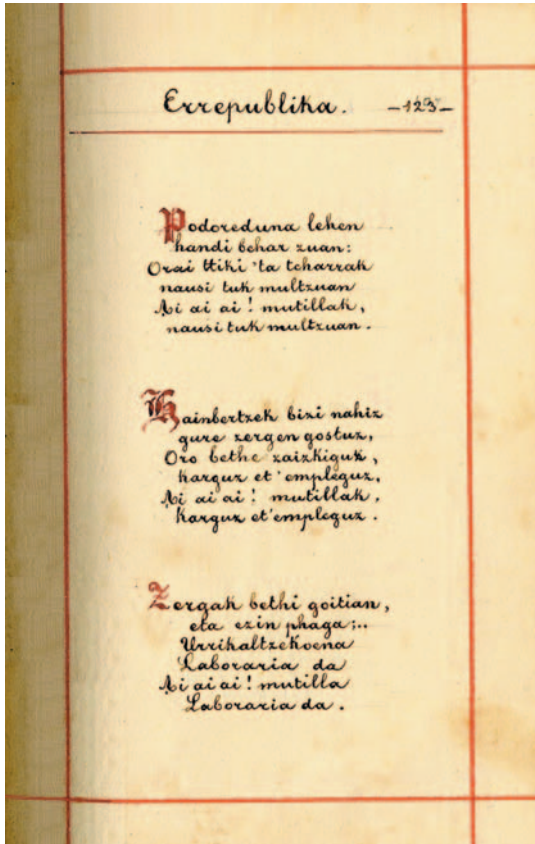 Errepublika. -123-
Podoreduna lehen
handi behar zuan:
Orai ttiki 'ta tcharrak
nausi tuk multzuan
Ai ai ai! mutillak,
nausi tuk multzuan.
Hainbertzek bizi nahiz
gure zergen gostuz,
Oro bethe zaizkiguk,
karguz et'empleguz,
Ai ai ai! mutillak,
karguz et'empleguz.
Zergak bethi goitian,
eta ezin phaga;..
Urrikaltzekoena
Laboraria da
Ai ai ai! mutilla
Laboraria da.